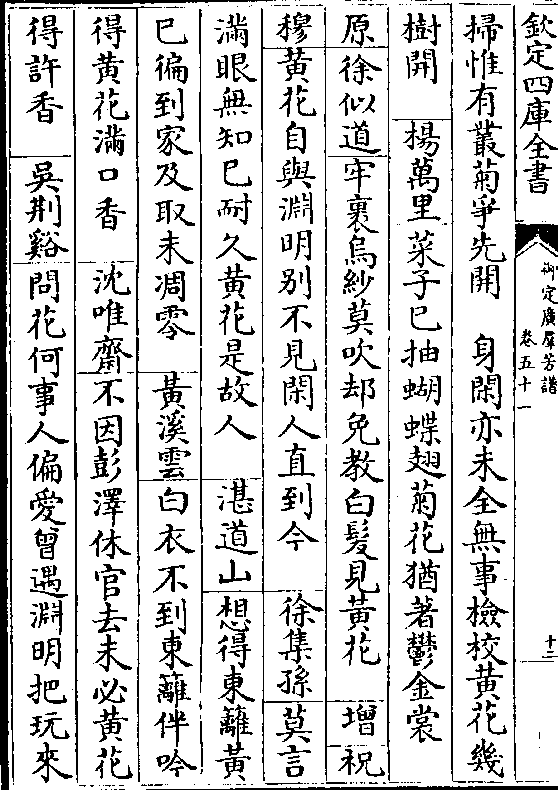 欽定四庫全書
御定廣羣芳譜
卷五十一
十三
掃惟有叢菊爭先開　身閑亦未全無事檢校黄花幾
樹開　楊萬里菜子已抽蝴蝶翅菊花猶著鬱金裳
原徐似道牢裹烏紗莫吹却免教白髮見黄花　增祝
穆黄花自與淵明别不見閑人直到今　徐集孫莫言
滿眼無知已耐久黄花是故人　湛道山想得東籬黄
已徧到家及取未凋零　黄溪雲白衣不到東籬伴吟
得黄花滿口香　沈唯齋不因彭澤休官去未必黄花
得許香　吳荆谿問花何事人偏愛曾遇淵明把玩來